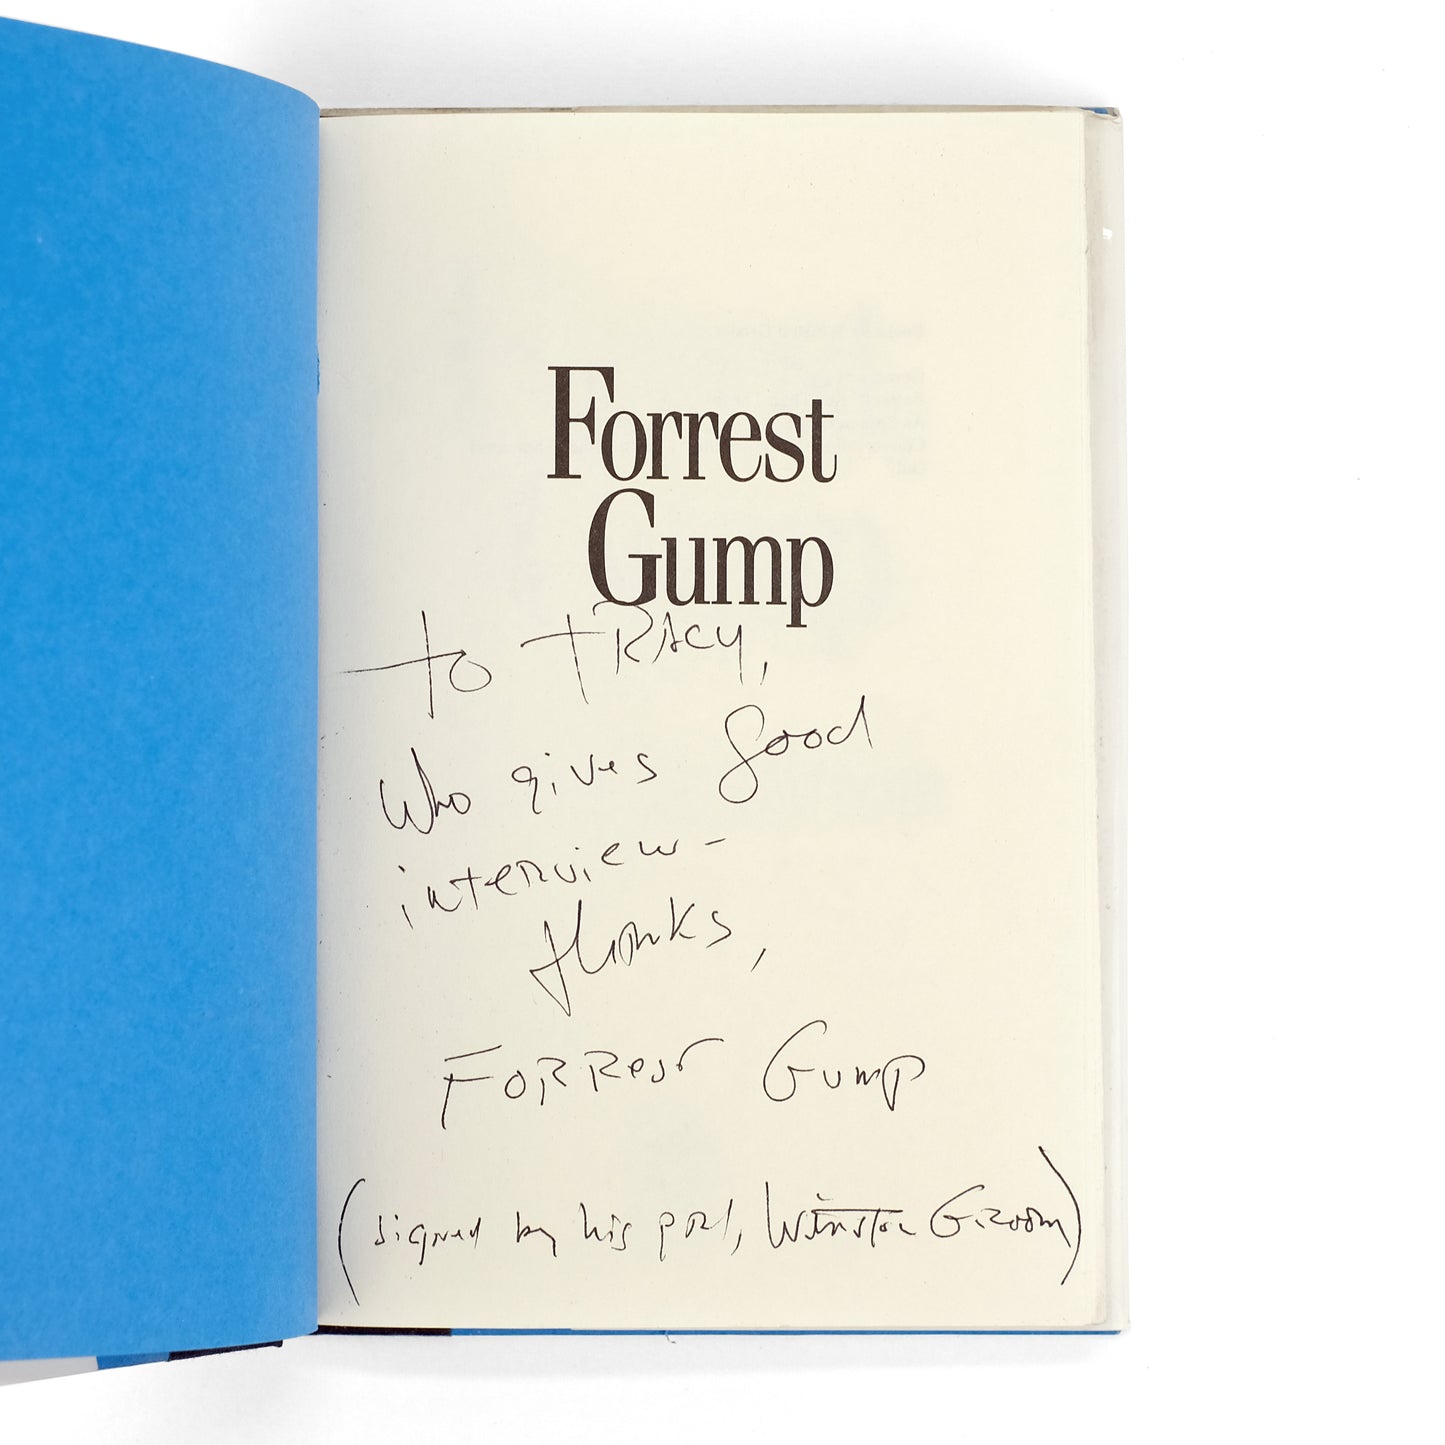 Forrest
Gump
to TRACY,
Who gives good
interview-
thanks,
FORRest Gump
(signed by his pal, Winston Groom)